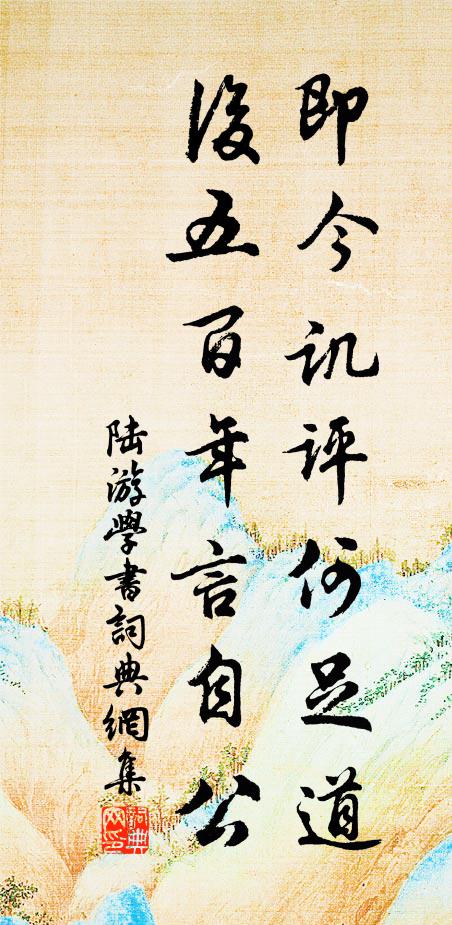 即今訊評何足道
後五百年言自公
陸游學書詞典網集
詞典网印